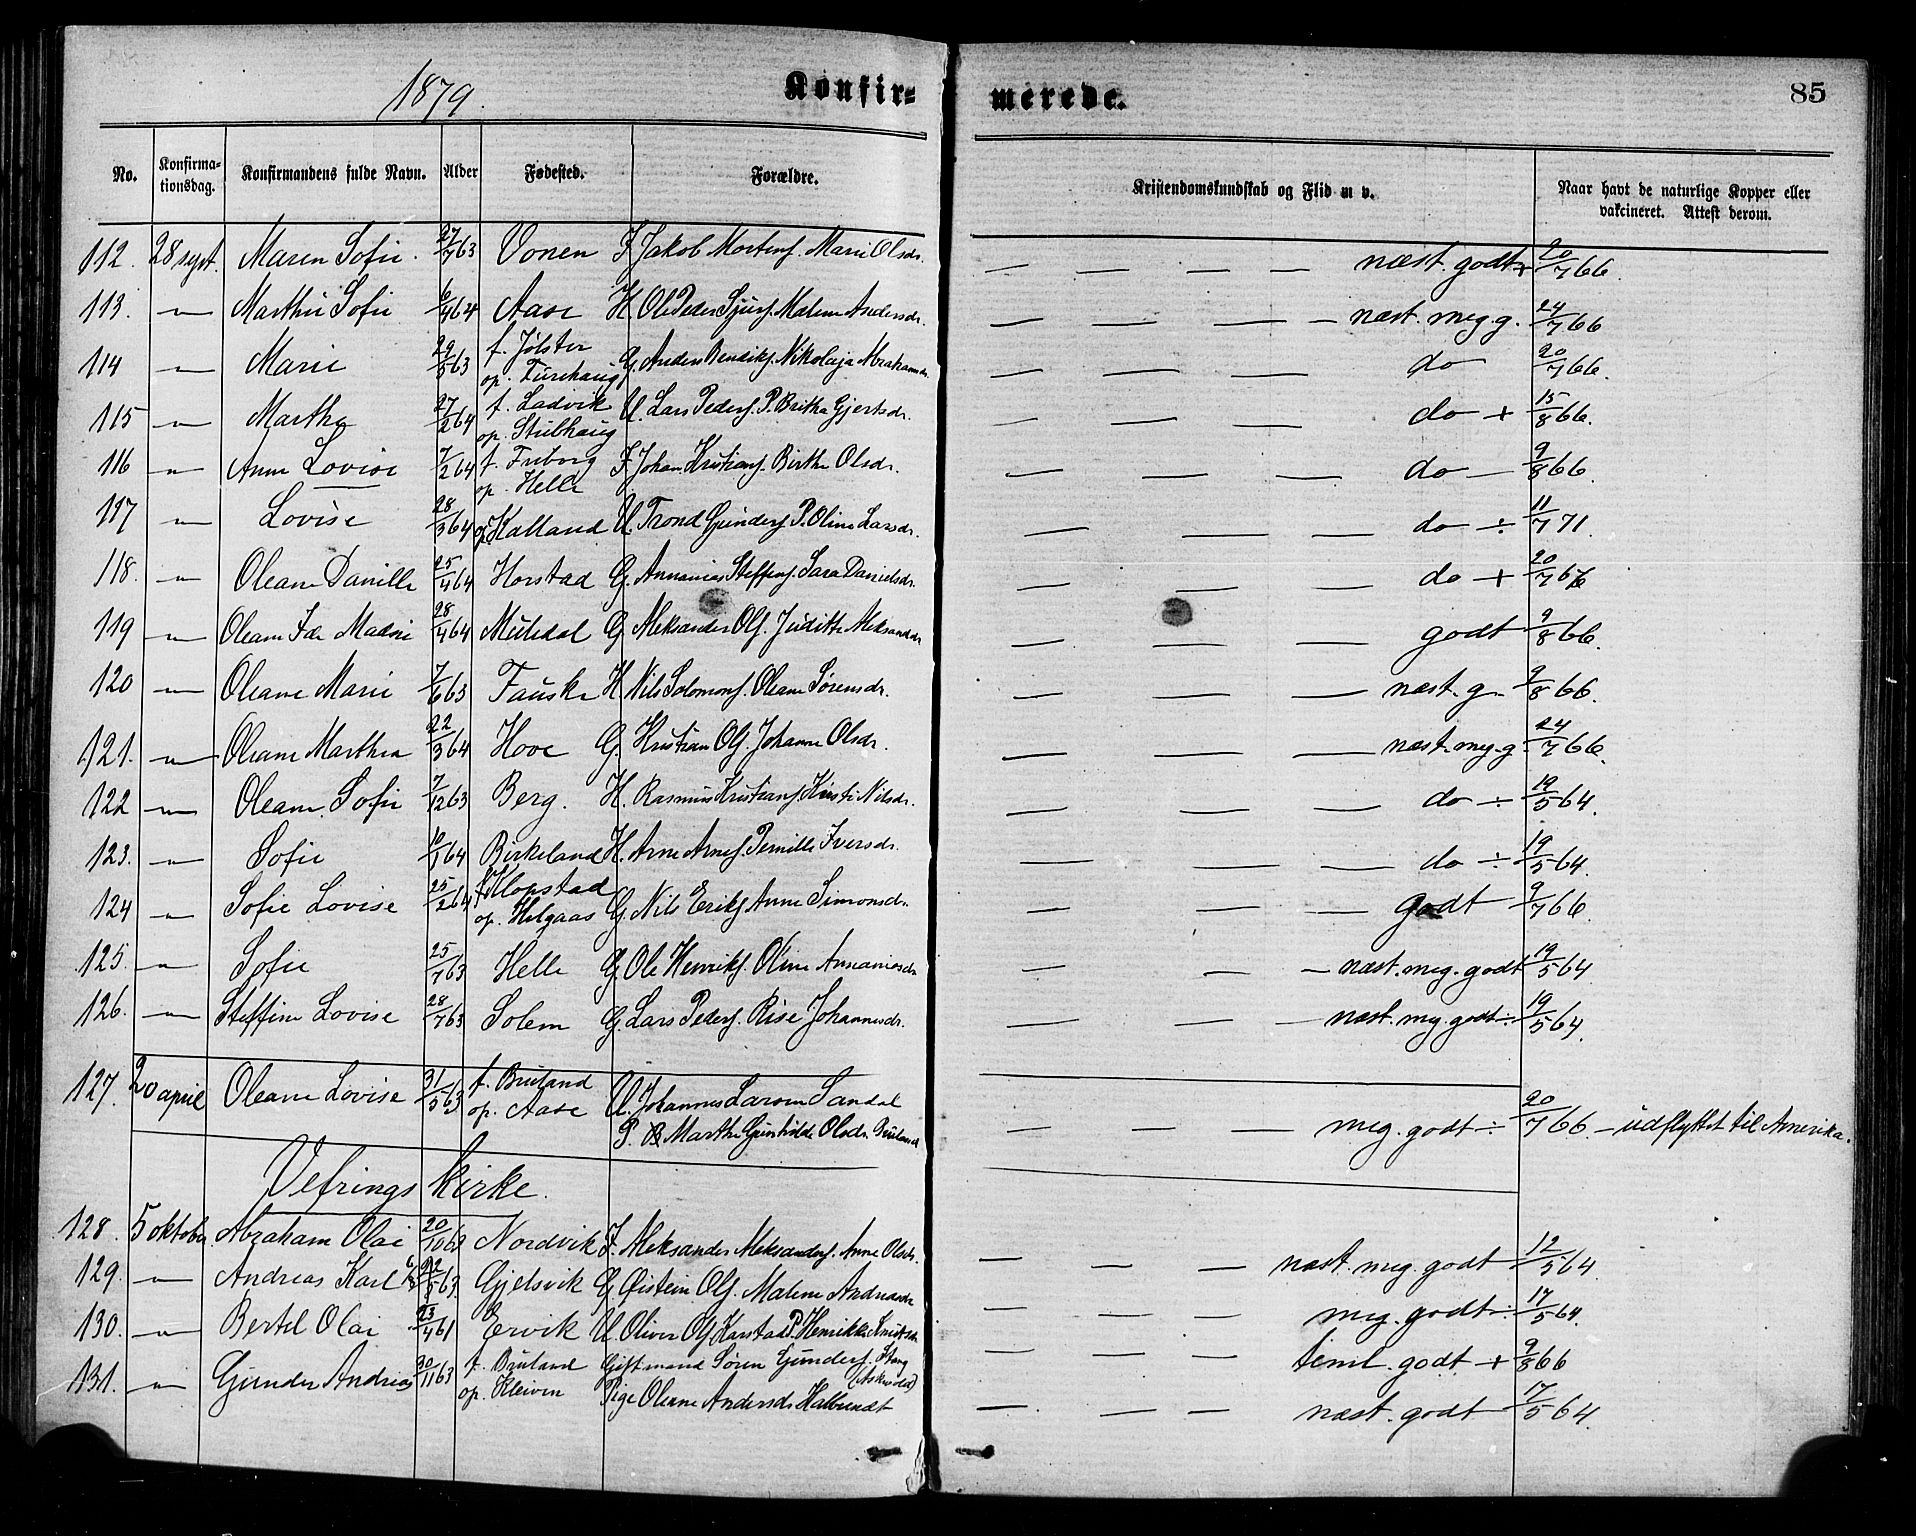 1879.
Konfir=
merede.
85
No.
Konfirma=
tionsdag.
Konfirmandens fulde Navn.
Alder
Fødested.
Forældre.
Kristendomskundskab og Flid m v.
Naar havt de naturlige Kopper eller
vakcineret. Attest derom.
112. 28 sept. Maren Sofie. 27/7 63 Vonen F. Jakob Mortens. Marie Olsdr. — — — — næst. godt + 20/7 66.
113. — Marthe Sofie 6/4 64 Aase H. Ole Peder Sjurs. Malene Andersdr. — — — — næst. meg g. 24/7 66
114 — Marie 29/5 63 f. Jølster
op. Furehaug G. Anders Bendiks. Nikolaja Abrahamsdr. — — — do 20/7 66.
115 — Martha 27/2 64 f. Ladvik
op. Stubhaug U. Lars Peders. P. Britha Gjertsdr. — — — do + 15/8 66.
116 — Anne Lovise 7/2 64 f. Friborg
op. Helle F. Johan Kristians. Birthe Olsdr. — — — do — 9/8 66.
117 — Lovise 28/3 64 Kalland U. Trond Gunders. P. Oline Larsdr. — — — do ÷ 11/7 71.
118. — Oleane Danille 25/4 64 Horstad G. Annanias Steffens. Sara Danielsdr. — — — do + 20/7 66
119 — Oleane Ida Madsi 28/4 64 Muledal G. Aleksander Ols. Judithe Aleksandersdr. — — — godt 9/8 66.
120 — Oleane Marie 7/6 63 Fauske H. Nils Solomons. Oleane Sørensdr. — — — næst. g. 9/8 66.
121. — Oleane Marthea 22/3 64 Hove G. Kristian Ols. Johanne Olsdr. — — — næst. meg. g. 24/7 66.
122 — Oleane Sofie 7/12 63 Berg. H. Rasmus Kristians. Kirsti Nilsdr. — — — do ÷ 19/5 64.
123. — Sofie 10/1 64 Birkeland H. Arne Arnes. Pernille Iversdr. — — — do ÷ 19/5 64.
124 — Sofie Lovise 25/2 64 f. Klopstad
op. Helgaas G. Nils Eriks. Anne Simonsdr. — — — godt 9/7 66
125. — Sofie 25/7 63 Helle G. Ole Henriks. Oline Annaniasdr. — — — næst. meg. godt 19/5 64
126. — Steffine Lovise 28/7 63 Solem G. Lars Peders. Rise Johannesdr. — — — næst. meg. godt ÷ 19/5 64.
127. 20 april Oleane Lovise 31/5 63 f. Bruland
op. Aase U. Johannes Larsen Sandal
P. Marthe Gunhilde Olsdr. Bruland — — — meg. godt ÷ 20/7 66. — udflyttet til Amerika.
Vefrings Kirke.
128. 5 oktober Abraham Olai 20/10 62 Nordvik F. Aleksander Aleksanders. Anne Olsdr. — — — næst. meg. godt 12/5 64.
129. — Andreas Karl 22/5 63 Gjelsvik G. Øistein Ols. Malene Andreasdr. — — — meg. godt ÷ 17/5 64.
130. — Bertel Olai 23/4 61 Ervik U. Oliver Ols. Karstad P. Henrikke Knutsdr. — — — teml. godt + 9/8 66
131. — Gunder Andreas 30/11 63 f. Bruland
op. Kleiven Gift mand Søren Gunders. Stang
(Askvold)
Pige Oleane Andersdr. Halbrendt — — — næst. godt 17/5 64.